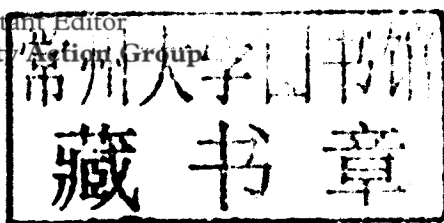 tant Editor
Action Group
常州大学图书馆
藏书章